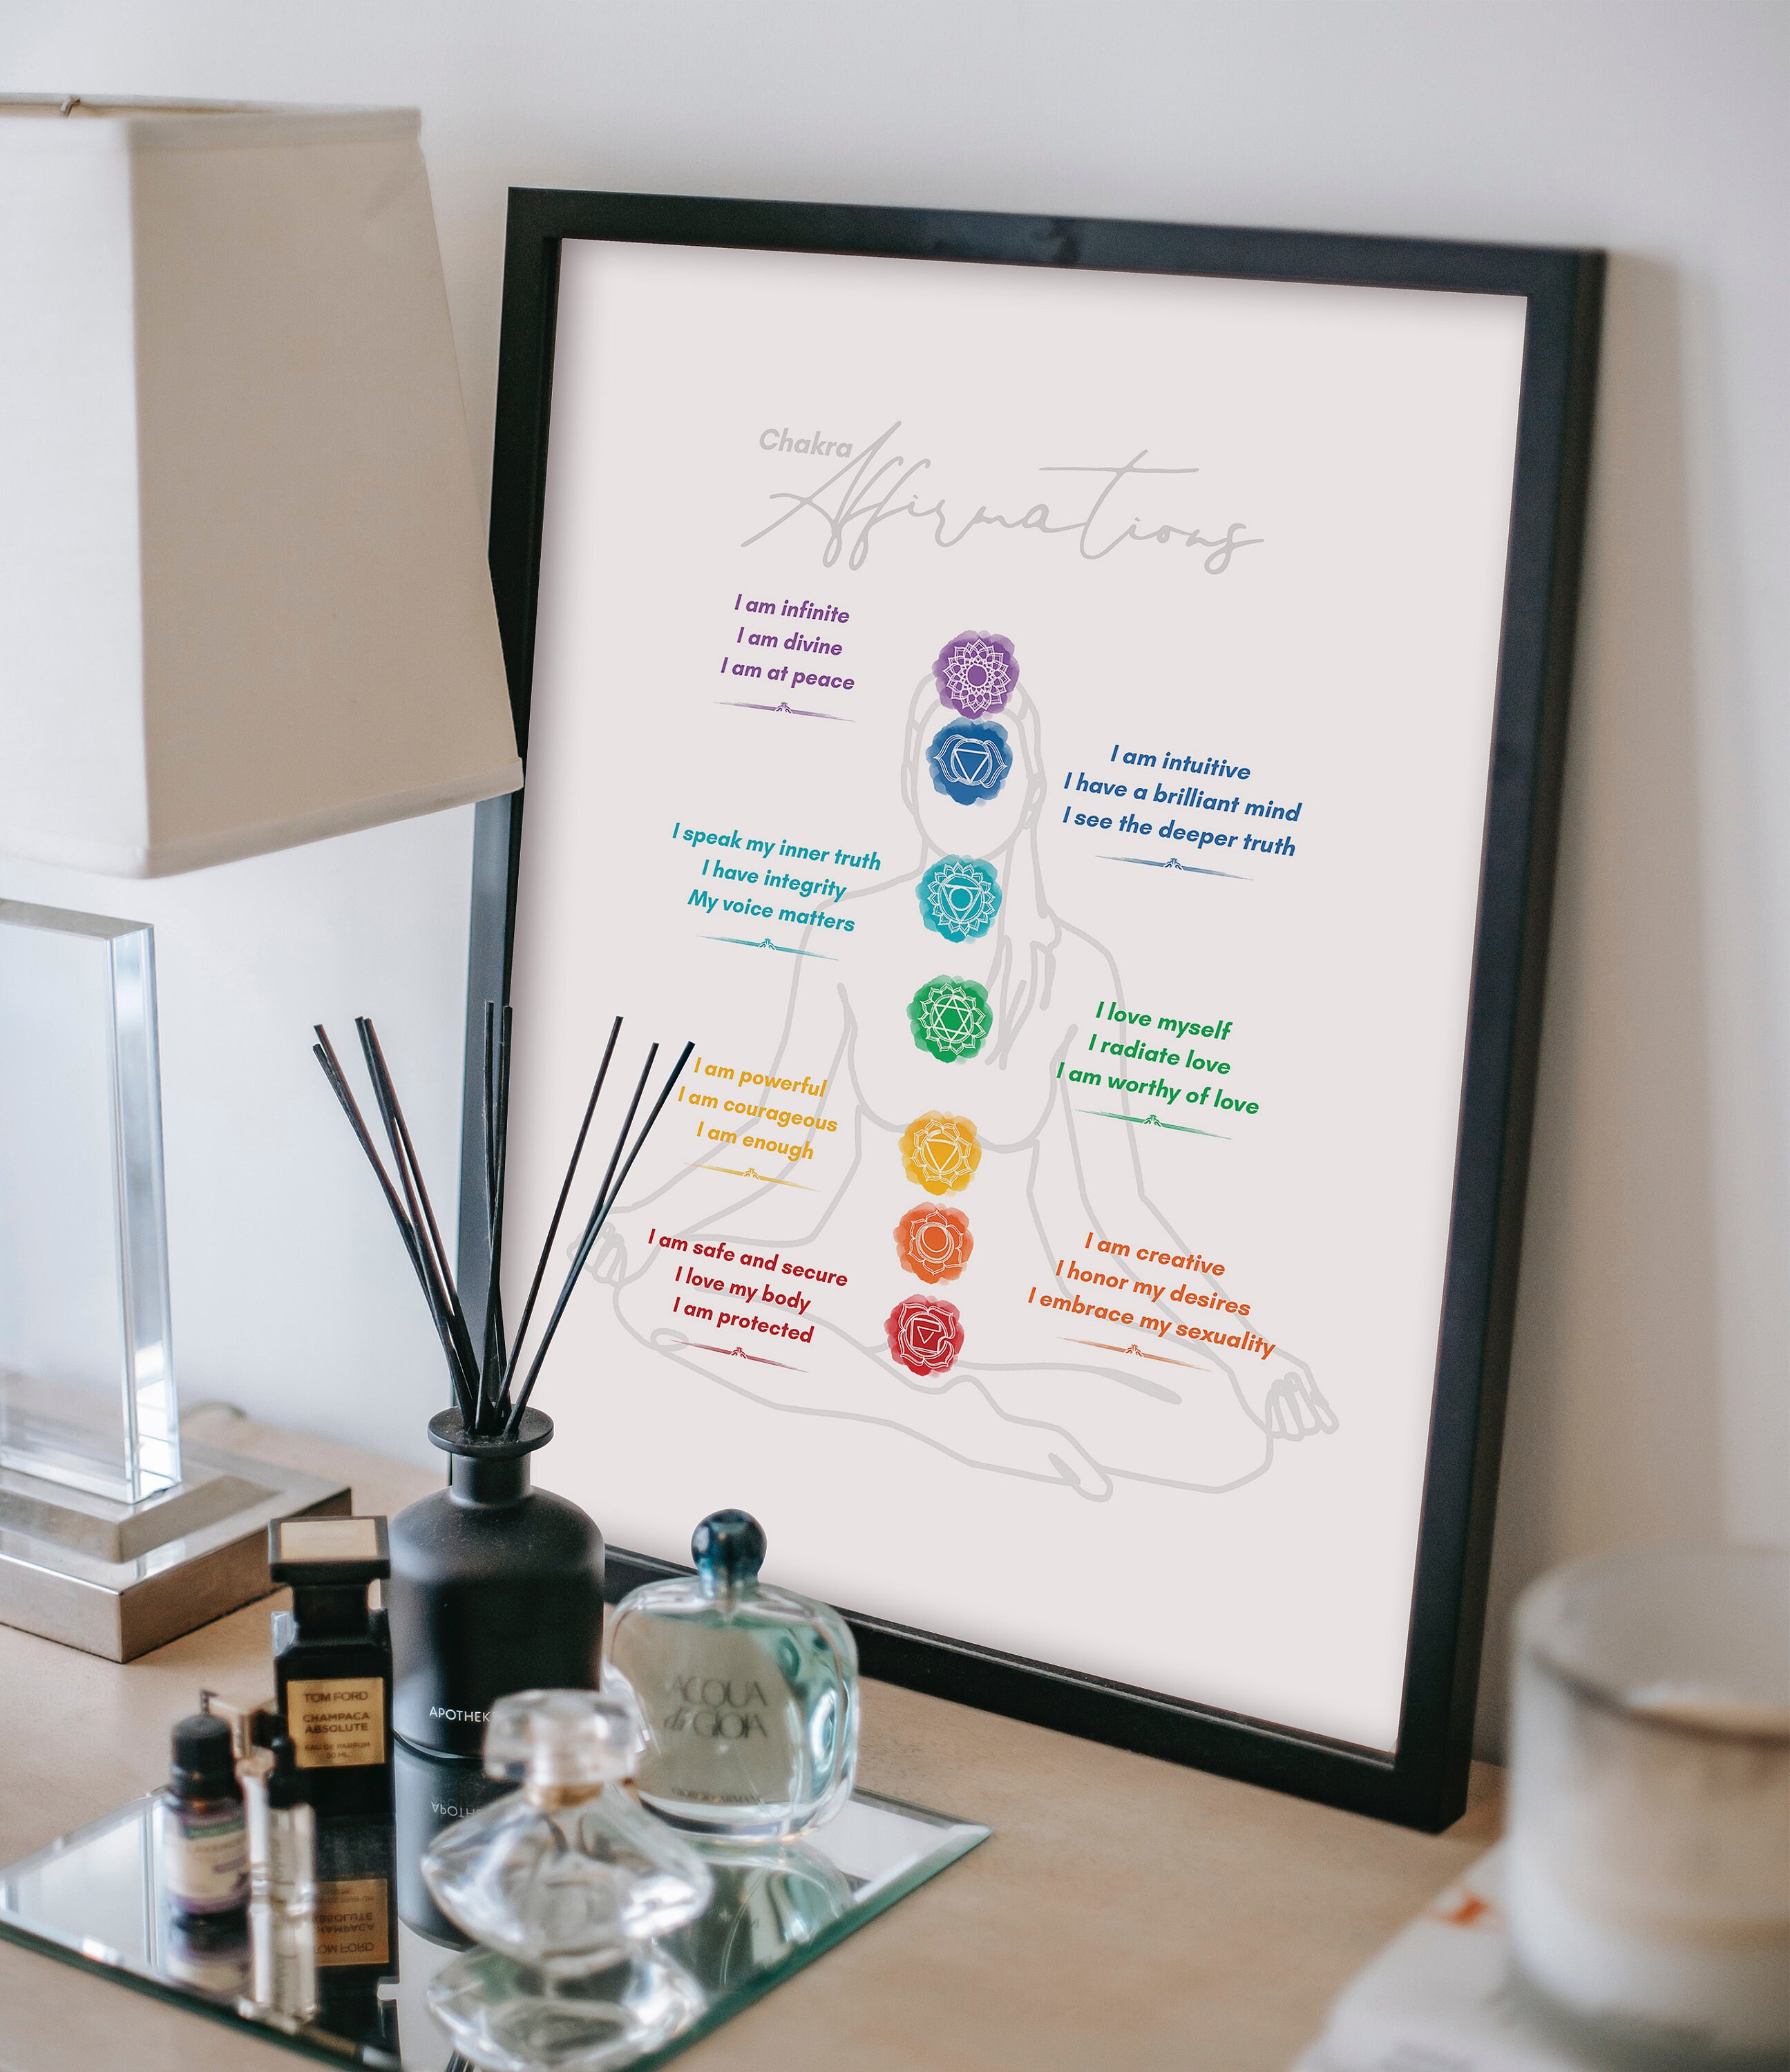 Chakra
Affirmations
I am infinite
I am divine
I am at peace
I am intuitive
I have a brilliant mind
I see the deeper truth
I speak my inner truth
I have integrity
My voice matters
I love myself
I radiate love
I am worthy of love
I am powerful
I am courageous
I am enough
I am safe and secure
I love my body
I am protected
I am creative
I honor my desires
I embrace my sexuality
TOM FORD
CHAMPACA
ABSOLUTE
EAU DE PARFUM
50 ML
APOTHEK
ACQUA
di GIOIA
GIORGIO ARMANI